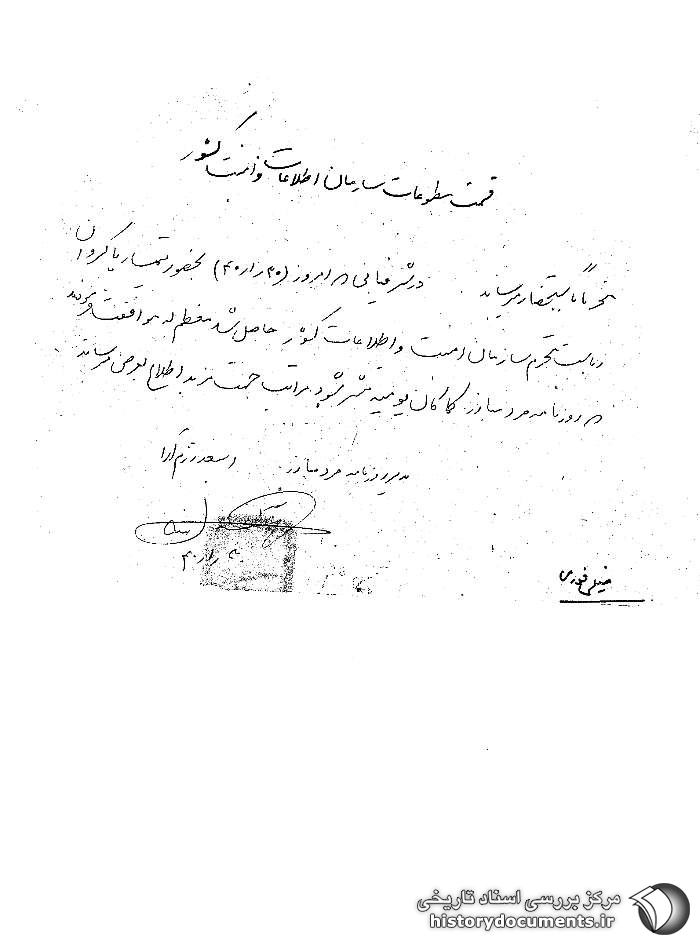 قسمت مطبوعات سازمان اطلاعات و امنیت کشور
محترماً باستحضار میرساند در شرفیابی امروز (۲۰ر۱ر۴۰) بحضور تیمسار پاکروان
ریاست محترم سازمان امنیت و اطلاعات کشور حاصل شد معظم له موافقت فرمودند
روزنامه مرد مبارز کماکان یومیه منتشر شود مراتب جهت مزید اطلاع بعرض میرساند
مدیر روزنامه مرد مبارز اسعد رزم آرا
خیلی فوری
مرکز بررسی اسناد تاریخی
historydocuments.ir